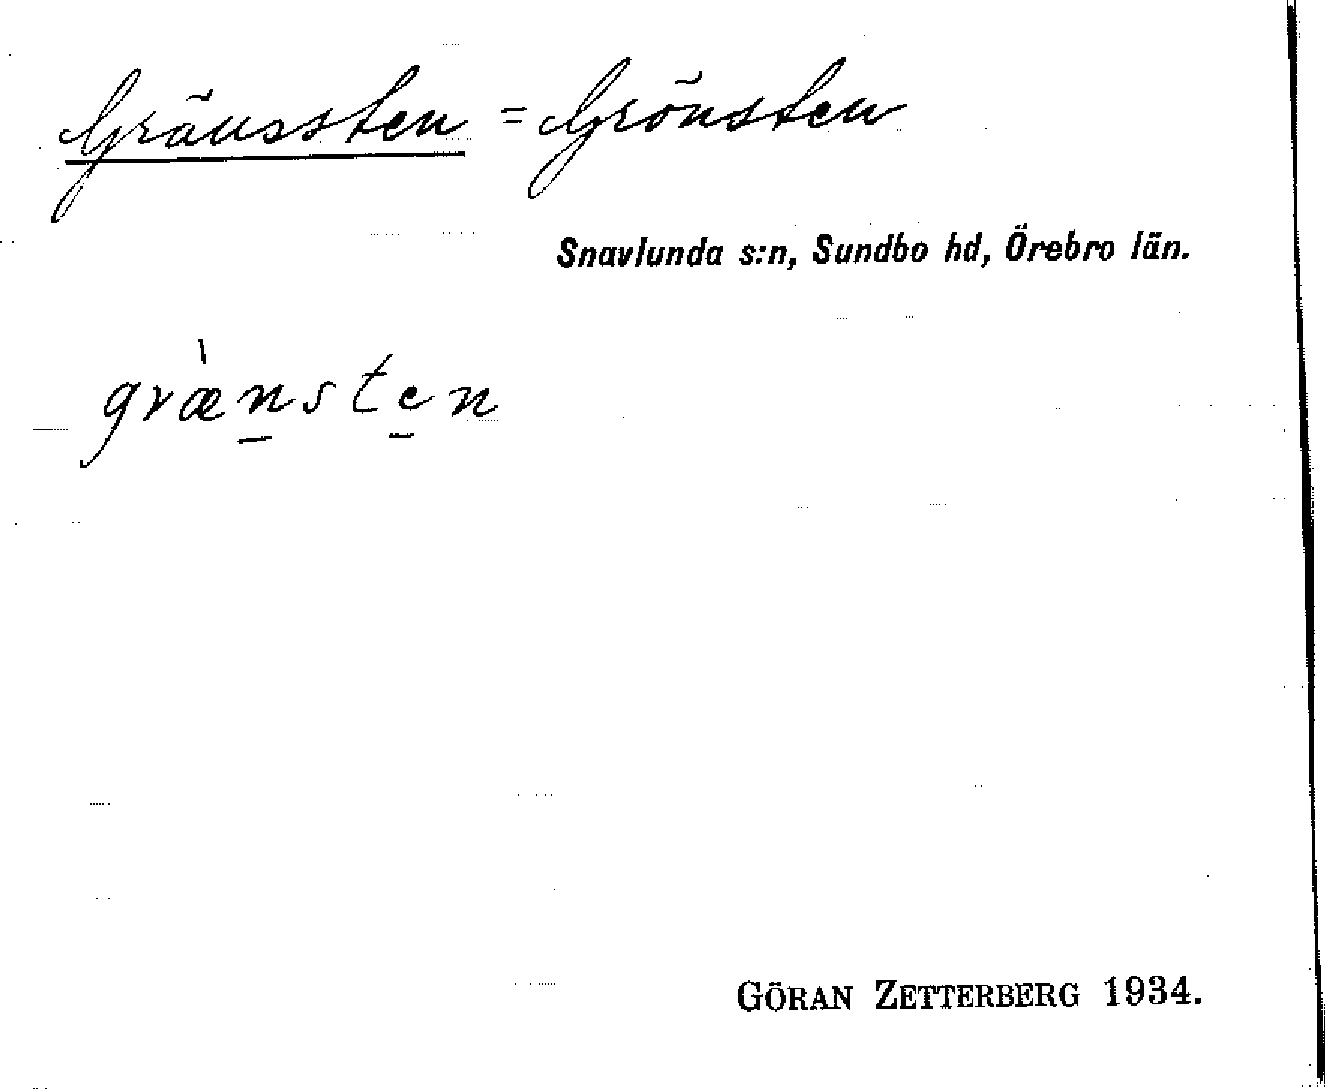 Gränssten = Grönsten
Snavlunda s:n, Sundbo hd, Örebro län.
græ̀n̠ste̠n
GÖRAN ZETTERBERG 1934.